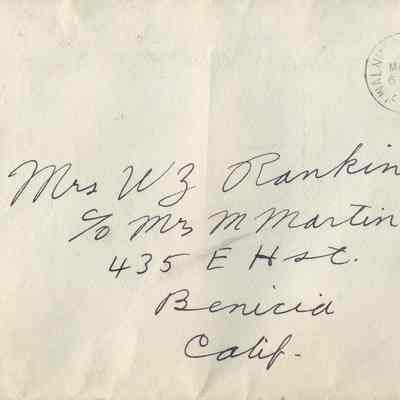 WALNU
MA
Mrs WZ Rankin
c/o Mrs M Martin
435 E H st.
Benicia
Calif.